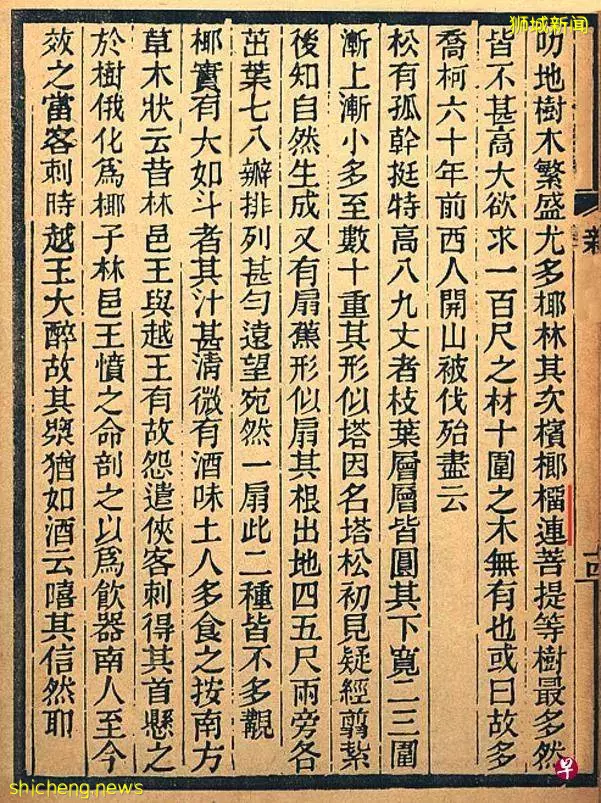 狮城新闻
叻地樹木繁盛尤多椰林其次檳榔橊連菩提等樹最多然
皆不甚高大欲求一百尺之材十圍之木無有也或曰故多
喬柯六十年前西人開山被伐殆盡云
松有孤幹挺特高八九丈者枝葉層層皆圓其下寬二三圍
漸上漸小多至數十重其形似塔因名塔松初見疑經翦紮
後知自然生成又有扇蕉形似扇其根出地四五尺兩旁各
茁葉七八瓣排列甚勻遠望宛然一扇此二種皆不多覯
椰實有大如斗者其汁甚清微有酒味土人多食之按南方
草木狀云昔林邑王與越王有故怨遣俠客刺得其首懸之
於樹俄化爲椰子林邑王憤之命剖之以爲飲器南人至今
效之當客刺時越王大醉故其漿猶如酒云嘻其信然耶
早
shicheng.news